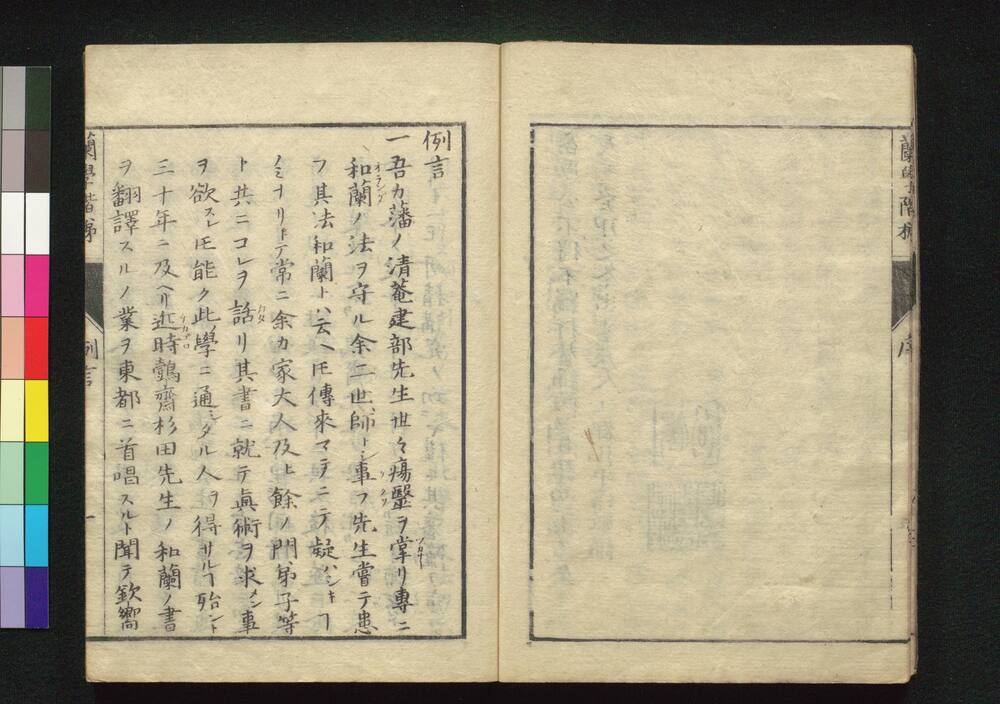 蘭學階梯
序
例言
一吾カ藩ノ清菴建部先生世々瘍醫ヲ掌リ專ニ
和蘭ノ法ヲ守ル余二世師トシ事フ先生嘗テ患
フ其法和蘭トハ云ヘ𪜈傳來マテニテ疑ハシキヿ
ノミナリトテ常ニ余カ家大人及ヒ餘ノ門弟子等
ト共ニコレヲ話リ其書ニ就テ眞術ヲ求メン事
ヲ欲スレ𪜈能ク此學ニ通シタル人ヲ得サルヿ殆ント
三十年ニ及ヘリ近時鷧齋杉田先生ノ和蘭ノ書
ヲ翻譯スルノ業ヲ東都ニ首唱スルト聞テ欽嚮
蘭學階梯
例言
一